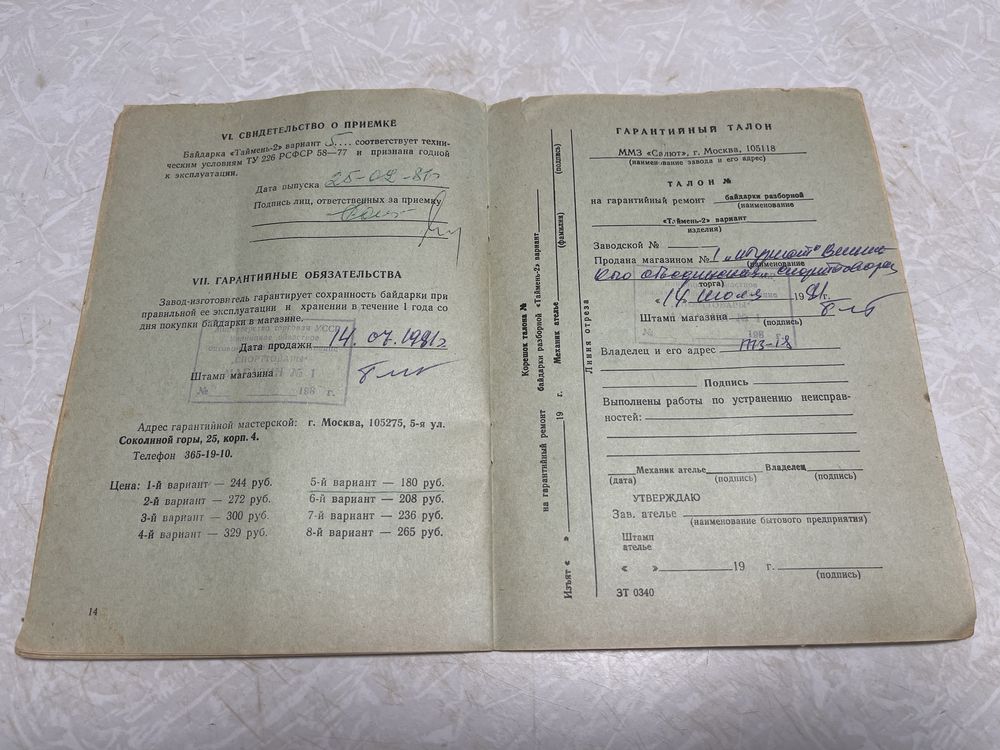 VI. СВИДЕТЕЛЬСТВО О ПРИЕМКЕ
Байдарка «Таймень-2» вариант 5.... соответствует техни-
ческим условиям ТУ 226 РСФСР 58—77 и признана годной
к эксплуатации.
Дата выпуска 25-02-81г
Подпись лиц, ответственных за приемку
VII. ГАРАНТИЙНЫЕ ОБЯЗАТЕЛЬСТВА
Завод-изготовитель гарантирует сохранность байдарки при
правильной ее эксплуатации и хранении в течение 1 года со
дня покупки байдарки в магазине.
Министерство торговли УССР
областное
Дата продажи 14.07.1981г.
СПОРТТОВАРЫ
Штамп магазина
МАГАЗИН № 1
№ 198 г.
Адрес гарантийной мастерской: г. Москва, 105275, 5-я ул.
Соколиной горы, 25, корп. 4.
Телефон 365-19-10.
Цена: 1-й вариант — 244 руб.
2-й вариант — 272 руб.
3-й вариант — 300 руб.
4-й вариант — 329 руб.
5-й вариант — 180 руб.
6-й вариант — 208 руб.
7-й вариант — 236 руб.
8-й вариант — 265 руб.
14
Корешок талона №
на гарантийный ремонт байдарки разборной «Таймень-2» вариант
Изъят « » 19 г. Механик ателье (фамилия) (подпись)
Линия отреза
ГАРАНТИЙНЫЙ ТАЛОН
ММЗ «Салют», г. Москва, 105118
(наименование завода и его адрес)
ТАЛОН №
на гарантийный ремонт байдарки разборной
(наименование
«Таймень-2» вариант
изделия)
Заводской №
Продана магазином № 1 „Турист"
(наименование
торга)
«14 июля 1981г.
Штамп магазина
(подпись)
№ 198
Владелец и его адрес
Подпись
Выполнены работы по устранению неисправ-
ностей:
Механик ателье Владелец
(дата) (подпись) (подпись)
УТВЕРЖДАЮ
Зав. ателье
(наименование бытового предприятия)
Штамп
ателье
« » 19 г.
(подпись)
ЗТ 0340